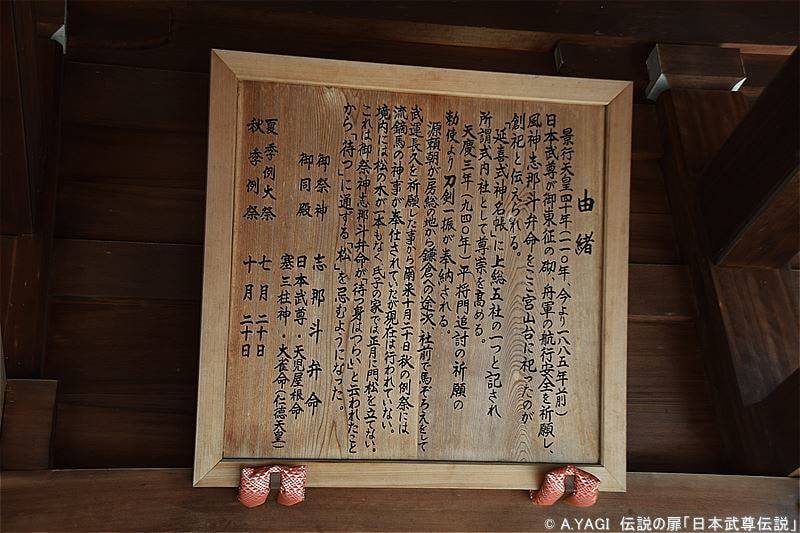 由緒
景行天皇四十年(一一〇年、今より一八八五年前)
日本武尊が御東征の砌、舟軍の航行安全を祈願し、
風神志那斗弁命をここ宮山台に祀ったのが
創祀と伝えられる。
「延喜式神名帳」に上総五社の一つと記され
所謂式内社として尊崇を高める。
天慶三年(九四〇年)平将門追討の祈願の
勅使より刀剣一振が奉納される。
源頼朝が房総の地から鎌倉への途次、社前で馬ぞろえをして
武運長久を祈願した事から爾来十月二十日秋の例祭には
流鏑馬の神事が奉仕されていたが現在は行われていない。
境内には松の木が一本もなく、氏子の家では正月に門松を立てない。
これは御祭神志那斗弁命が「待つ身はつらい」と云われたこと
から「待つ」に通ずる「松」を忌むようになった。
御祭神 志那斗弁命
御同殿 日本武尊・天児屋根命
塞三柱神・大雀命(仁徳天皇)
夏季例大祭 七月二十日
秋季例祭 十月二十日
© A.YAGI 伝説の扉「日本武尊伝説」